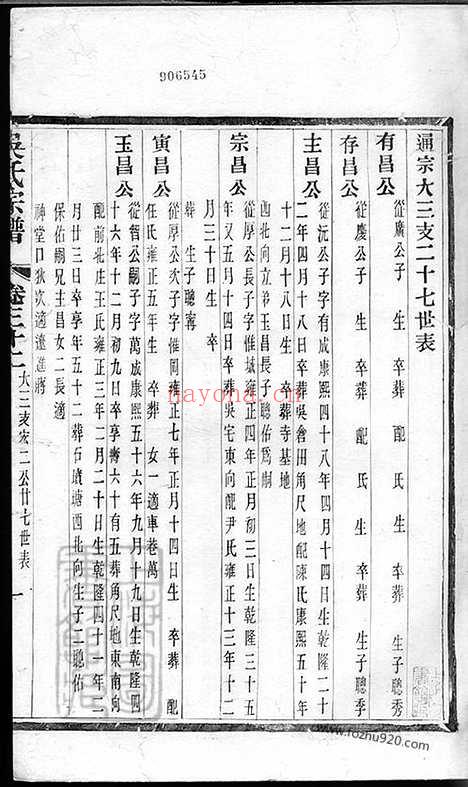 906545
通宗大三支二十七世表
有昌公
從廣公子 生 卒葬 配 氏生 卒葬 生子聰秀
存昌公
從慶公子 生 卒葬 配 氏生 卒葬 生子聰季
主昌公
從沅公子字有成康熙四十八年四月十四日生乾隆二十
二年四月十八日卒葬吳會田角尺地配陳氏康熙五十年
十二月十八日生 卒葬寺基地
四北向立弟玉昌長子聰佑爲嗣
宗昌公
從厚公長子字惟城雍正四年正月初三日生乾隆三十五
年又五月十四日卒葬吳宅東向配尹氏雍正十三年十二
月三十日生 卒
葬 生子聰寗
寅昌公
從厚公次子字惟周雍正七年正月十四日生 卒葬 配
任氏雍正五年生 卒葬 女一適車巷萬
玉昌公
從智公嗣子字萬成康熙五十六年九月十九日生乾隆四
十六年十二月初九日卒享壽六十有五葬角尺地東南向
配前北庄王氏雍正三年二月二十日生乾隆四十一年二
月廿三日卒享年五十二葬石墳塘西北向生子二聰佑
保佑嗣兄主昌女二長適
神堂口狄次適達進蔣
吳氏宗譜
卷三十二
大三支宏二公廿七世表
一
nayona.cn
www.fozhu920.com